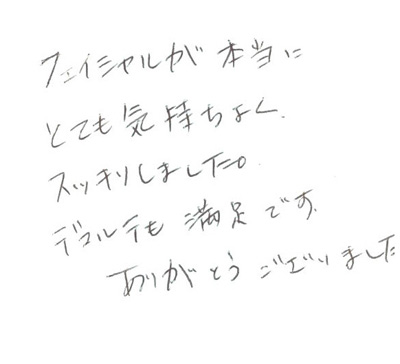 フェイシャルが本当に
とても気持ちよく、
スッキリしました。
デコルテも満足です。
ありがとうございました